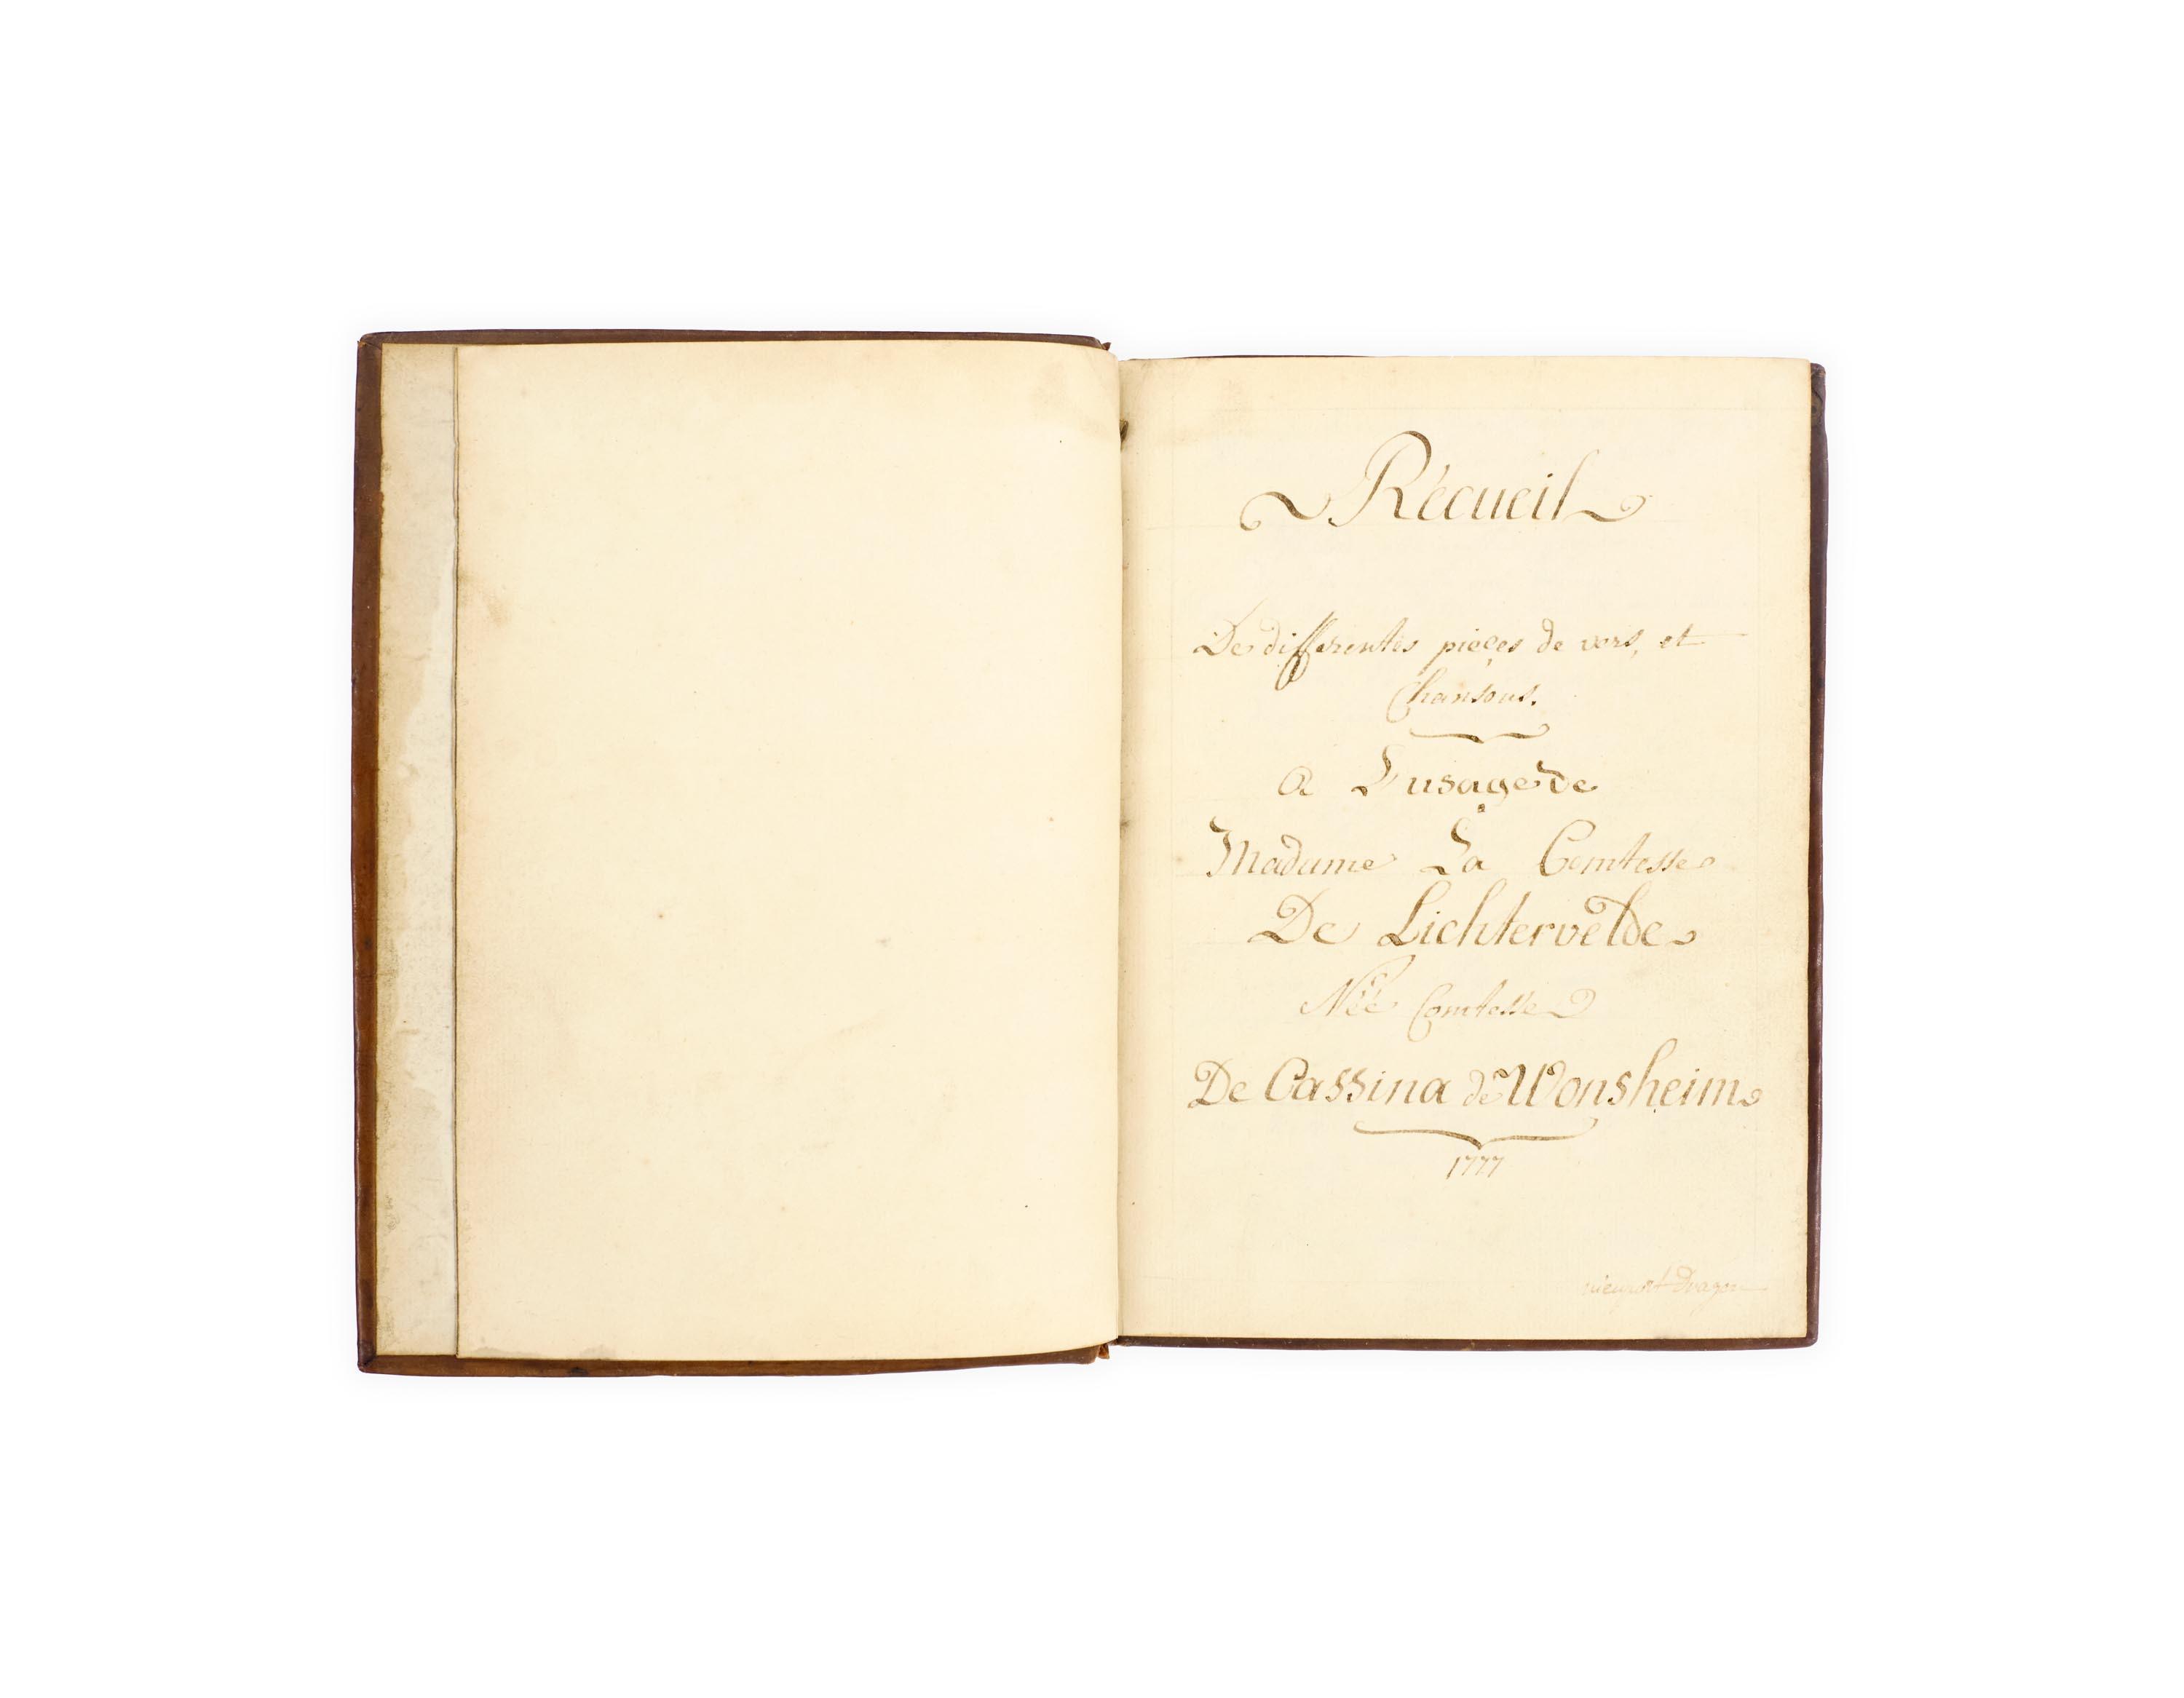 Récueil
De differentes pieçes de vers, et
Chansons.
A L'usage de
Madame La Comtesse
De Lichtervelde
Née Comtesse
De Cassina de Wonsheim
1777
nieuport Dragon